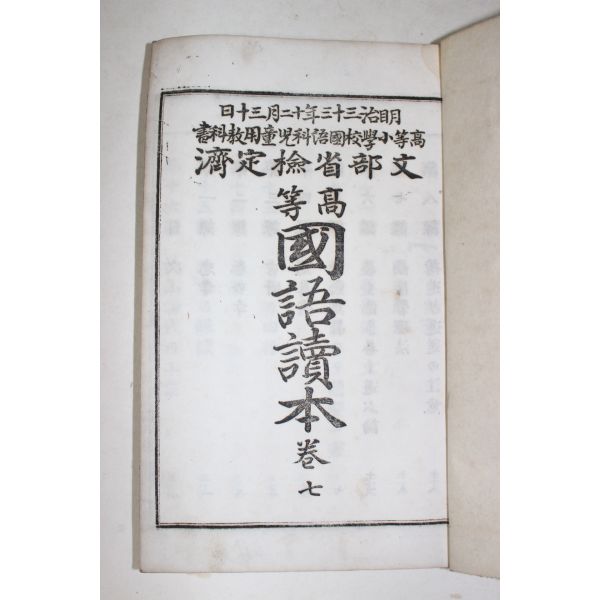 明治三十三年十二月三十日
高等小學校國語科児童用教科書
文部省檢定濟
高等
國語讀本 卷七